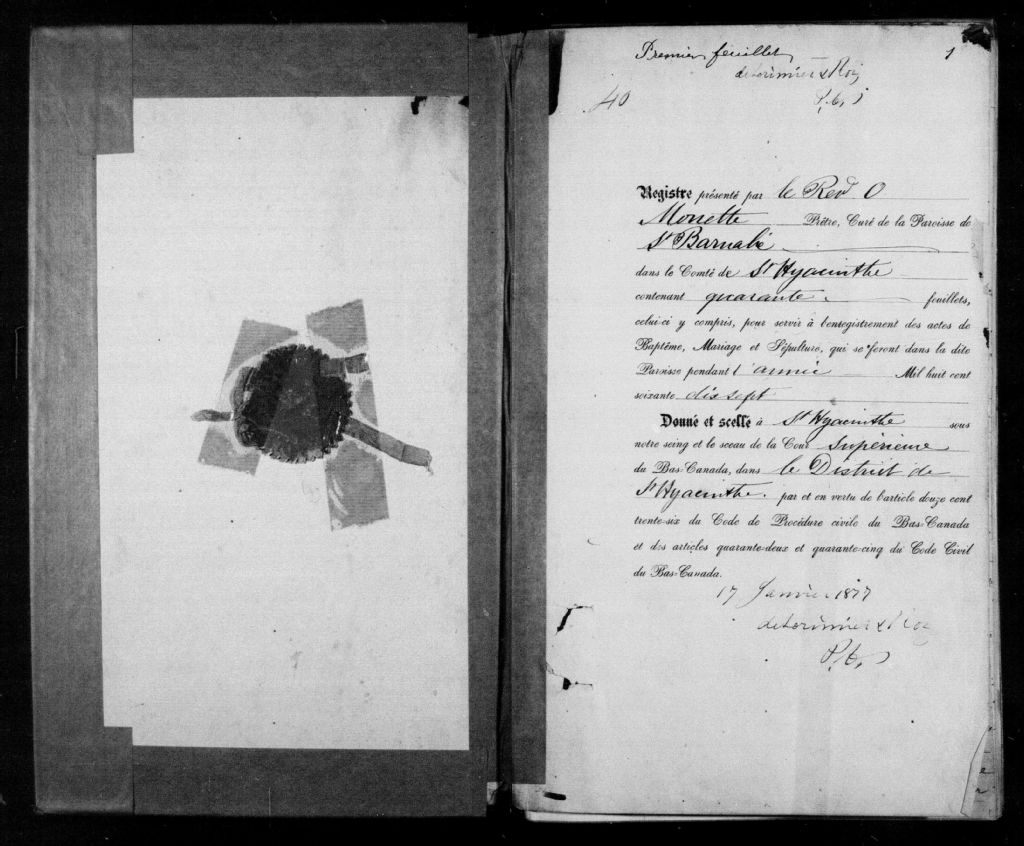 Premier feuillet 1
deLorimier & Roy
40 P.C.S
Registre présenté par le Revd O
Monette Prêtre, Curé de la Paroisse de
St Barnabé
dans le Comté de St Hyacinthe
contenant quarante feuillets,
celui-ci y compris, pour servir à l'enregistrement des actes de
Baptême, Mariage et Sépulture, qui se feront dans la dite
Paroisse pendant l'année Mil huit cent
soixante dix sept
Donné et scellé à St Hyacinthe sous
notre seing et le sceau de la Cour Supérieure
du Bas-Canada, dans le District de
St Hyacinthe. par et en vertu de l'article douze cent
trente-six du Code de Procédure civile du Bas-Canada
et des articles quarante-deux et quarante-cinq du Code Civil
du Bas-Canada.
17 Janvier 1877
deLorimier & Roy